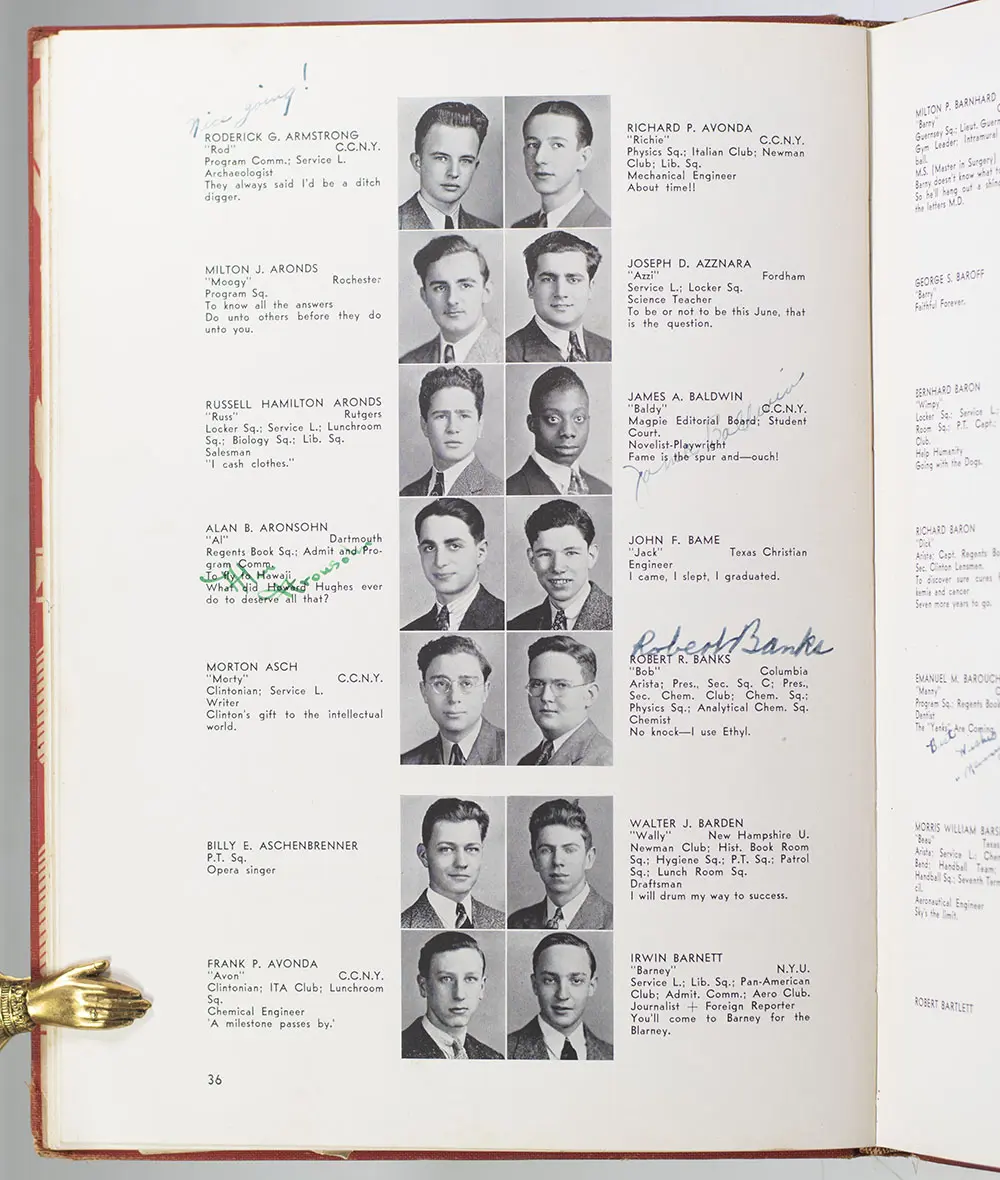 Nice going!
RODERICK G. ARMSTRONG
"Rod" C.C.N.Y.
Program Comm.; Service L.
Archaeologist
They always said I'd be a ditch
digger.
MILTON J. ARONDS
"Moogy" Rochester
Program Sq.
To know all the answers
Do unto others before they do
unto you.
RUSSELL HAMILTON ARONDS
"Russ" Rutgers
Locker Sq.; Service L.; Lunchroom
Sq.; Biology Sq.; Lib. Sq.
Salesman
"I cash clothes."
ALAN B. ARONSOHN
"Al" Dartmouth
Regents Book Sq.; Admit and Pro-
gram Comm.
To fly to Hawaii
What did Howard Hughes ever
do to deserve all that?
Alan Aronsohn
MORTON ASCH
"Morty" C.C.N.Y.
Clintonian; Service L.
Writer
Clinton's gift to the intellectual
world.
BILLY E. ASCHENBRENNER
P.T. Sq.
Opera singer
FRANK P. AVONDA
"Avon" C.C.N.Y.
Clintonian; ITA Club; Lunchroom
Sq.
Chemical Engineer
'A milestone passes by.'
36
RICHARD P. AVONDA
"Richie" C.C.N.Y.
Physics Sq.; Italian Club; Newman
Club; Lib. Sq.
Mechanical Engineer
About time!!
JOSEPH D. AZZNARA
"Azzi" Fordham
Service L.; Locker Sq.
Science Teacher
To be or not to be this June, that
is the question.
JAMES A. BALDWIN
"Baldy" C.C.N.Y.
Magpie Editorial Board; Student
Court.
Novelist-Playwright
Fame is the spur and—ouch!
James Baldwin
JOHN F. BAME
"Jack" Texas Christian
Engineer
I came, I slept, I graduated.
Robert Banks
ROBERT R. BANKS
"Bob" Columbia
Arista; Pres., Sec. Sq. C; Pres.,
Sec. Chem. Club; Chem. Sq.;
Physics Sq.; Analytical Chem. Sq.
Chemist
No knock—I use Ethyl.
WALTER J. BARDEN
"Wally" New Hampshire U.
Newman Club; Hist. Book Room
Sq.; Hygiene Sq.; P.T. Sq.; Patrol
Sq.; Lunch Room Sq.
Draftsman
I will drum my way to success.
IRWIN BARNETT
"Barney" N.Y.U.
Service L.; Lib. Sq.; Pan-American
Club; Admit. Comm.; Aero Club.
Journalist + Foreign Reporter
You'll come to Barney for the
Blarney.
MILTON P. BARNHARD
"Barny"
Guernsey Sq.; Lieut. Guern
Gym Leader; Intramural
ball.
M.S. (Master in Surgery)
Barny doesn't know what t
So he'll hang out a shin
the letters M.D.
GEORGE S. BAROFF
"Barry"
Faithful Forever.
BERNHARD BARON
"Wimpy"
Locker Sq.; Service L.;
Room Sq.; P.T. Capt.;
Club.
Help Humanity
Going with the Dogs.
RICHARD BARON
"Dick"
Arista; Capt. Regents Bo
Sec. Clinton Lensmen.
To discover sure cures
kemia and cancer
Seven more years to go.
EMANUEL M. BAROUCH
"Manny"
Program Sq.; Regents Book
Dentist
The "Yanks" Are Coming
Best
Wishes
Manny
MORRIS WILLIAM BARS
"Beau" Texas
Arista; Service L.; Chem
Band; Handball Team;
Handball Sq.; Seventh Term
cil.
Aeronautical Engineer
Sky's the limit.
ROBERT BARTLETT